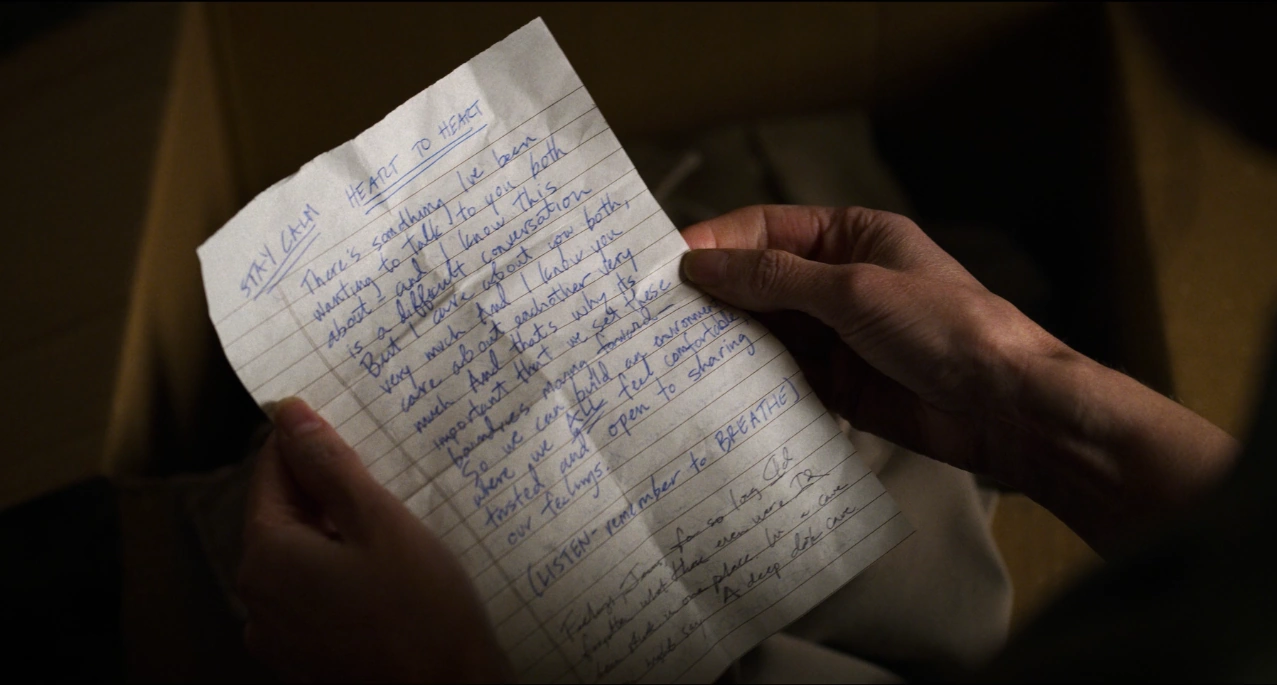 STAY CALM HEART TO HEART
There's something I've been
wanting to talk to you both
about and I know this
is a difficult conversation
But I care about you both,
very much And I know you
care about eachother very
much And thats why its
important that we set these
boundries moving forward-
So we can build an environment
where we ALL feel comfortable,
trusted and open to sharing
our feelings.
(LISTEN- remember to BREATHE)
Feelings for so long I'd
forgotten what those even were I'd
been stuck in one place. In a cave
A deep dark cave